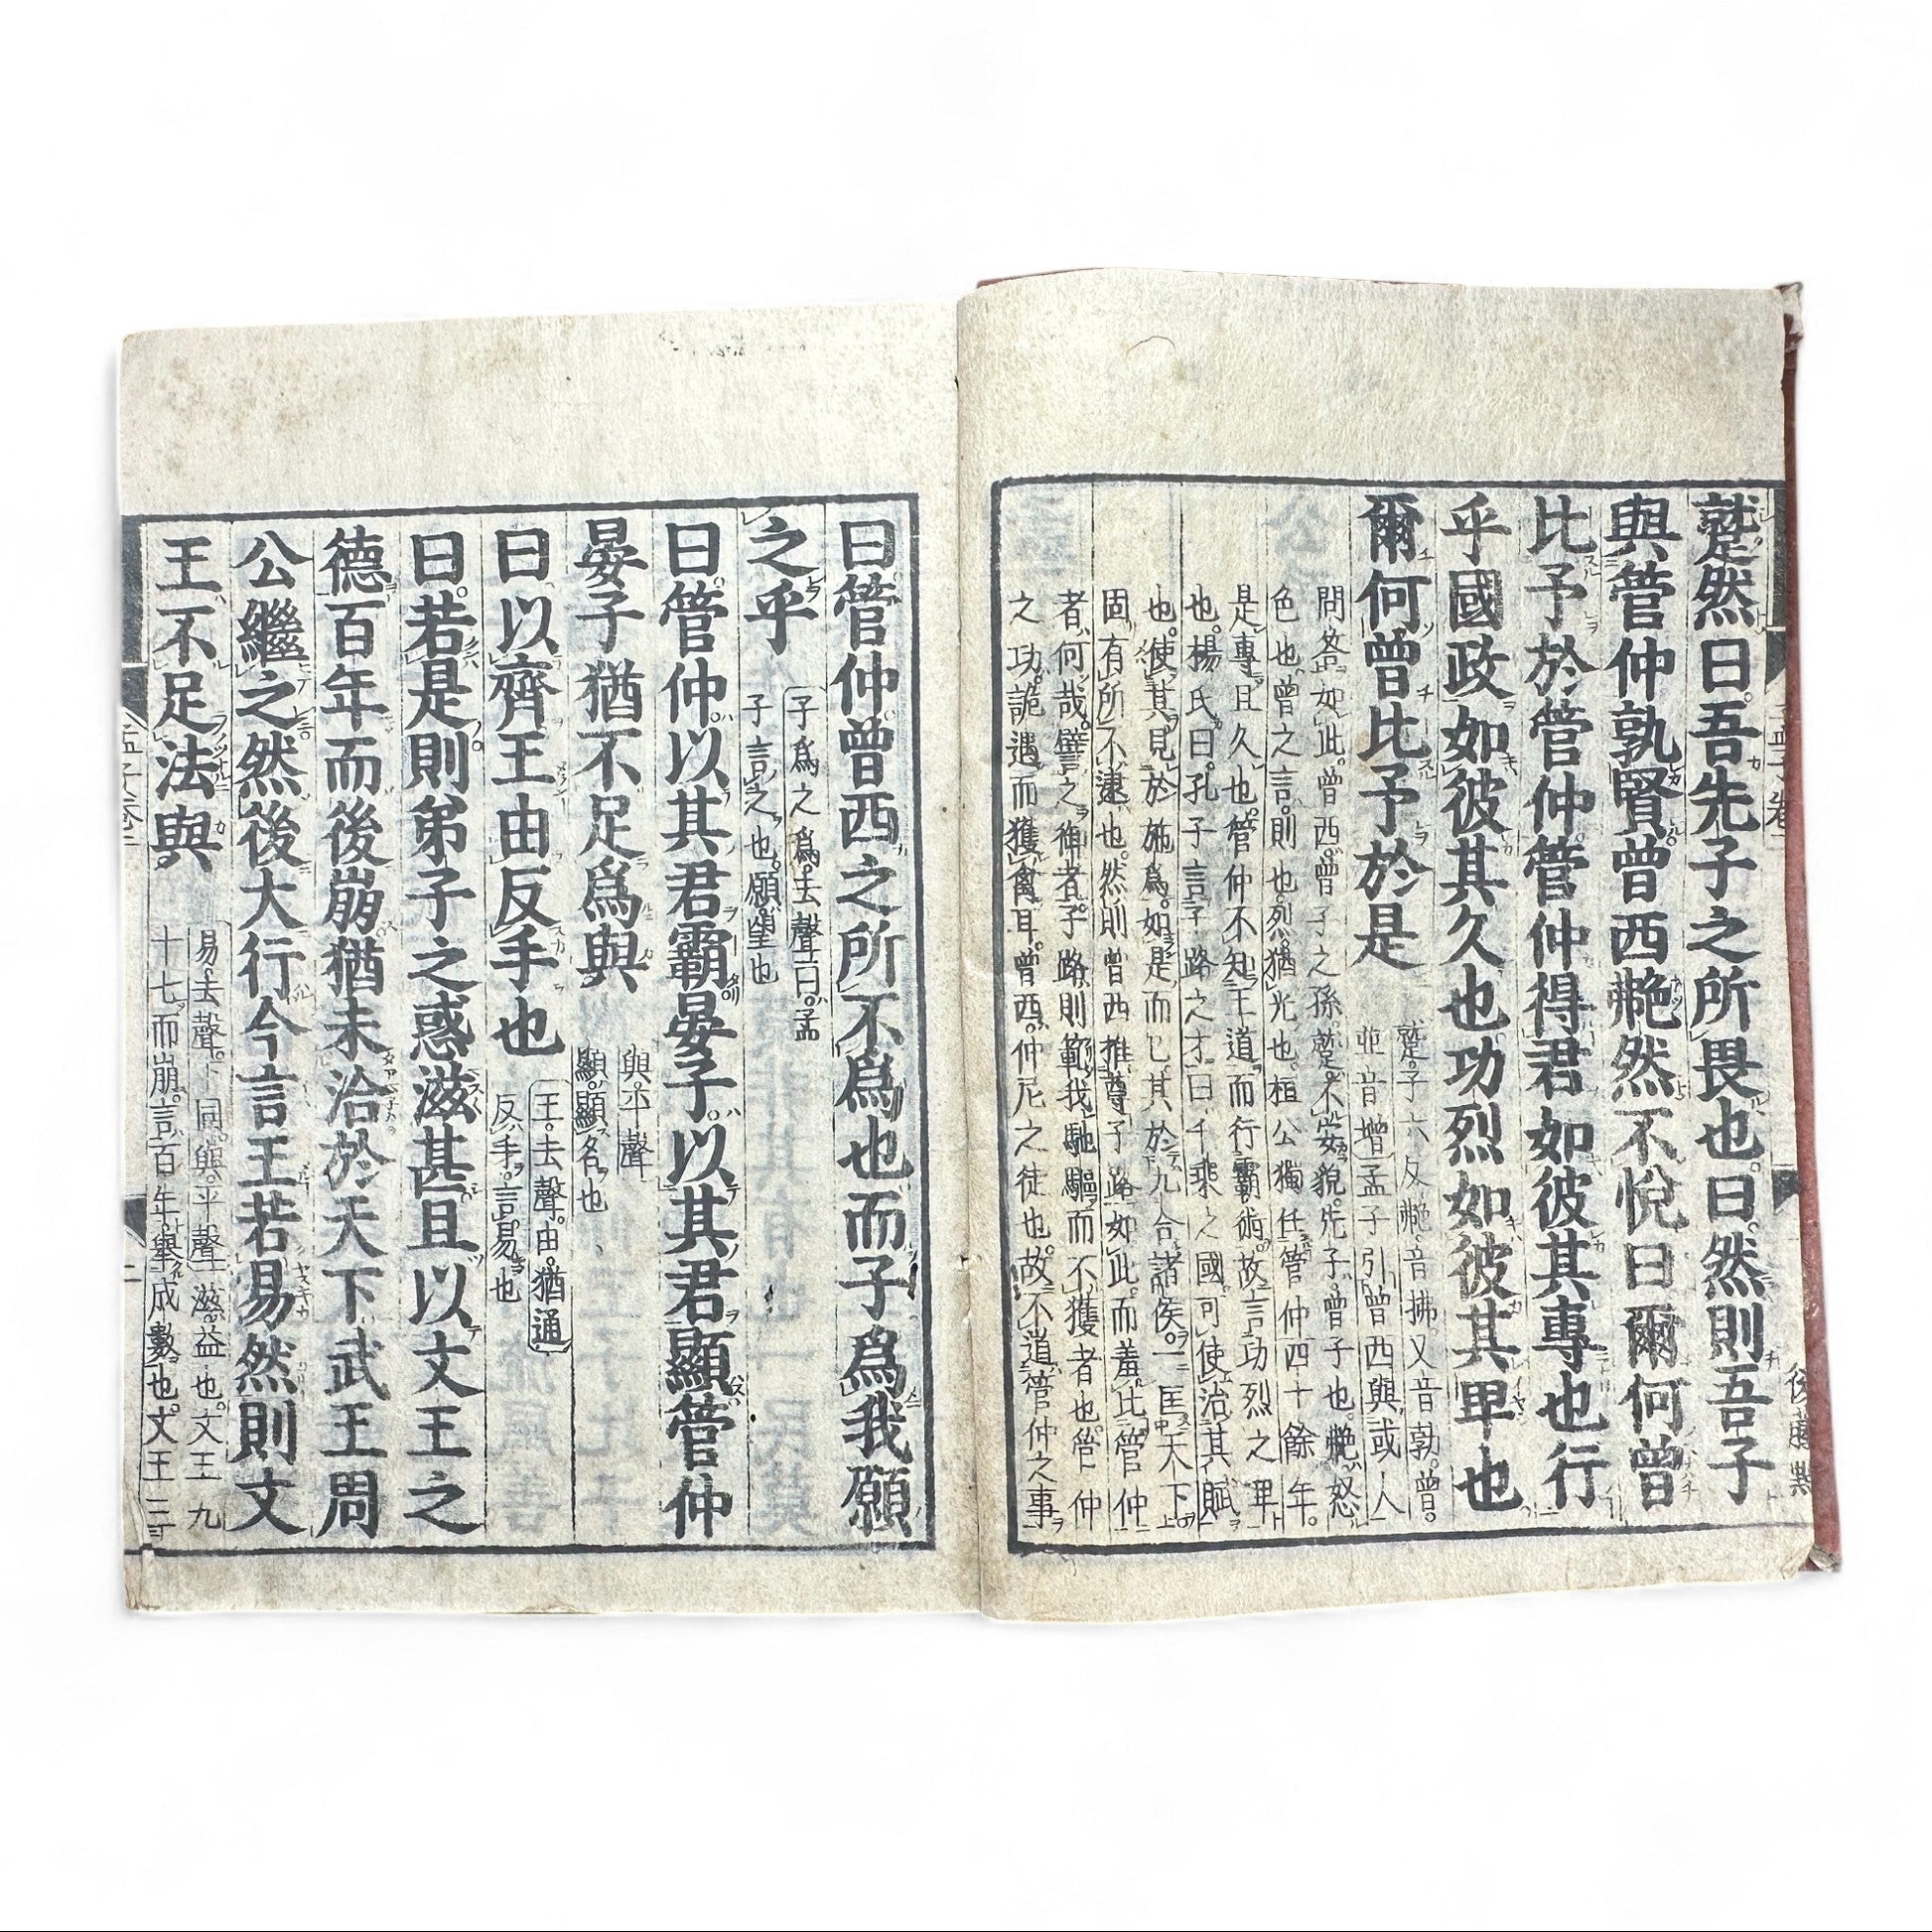 蹵然曰吾先子之所畏也曰然則吾子
與管仲孰賢曾西艴然不悅曰爾何曾
比予於管仲管仲得君如彼其專也行
乎國政如彼其久也功烈如彼其卑也
爾何曾比予於是
蹵子六反艴音拂又音勃曾
並音增孟子引曾西與或人
問答如此曾西曾子之孫蹵不安貌先子曾子也艴怒
色也曾之言則也烈猶光也桓公獨任管仲四十餘年
是專且久也管仲不知王道而行霸術故言功烈之卑
也楊氏曰孔子言子路之才曰千乘之國可使治其賦
也使其見於施爲如是而已其於九合諸侯一匡天下
固有所不逮也然則曾西推尊子路如此而羞比管仲
者何哉譬之御者子路則範我馳驅而不獲者也管仲
之功詭遇而獲禽耳曾西仲尼之徒也故不道管仲之事
曰管仲曾西之所不爲也而子爲我願
之乎
子爲之爲去聲曰孟
子言之也願望也
曰管仲以其君霸晏子以其君顯管仲
晏子猶不足爲與
與平聲
顯顯名也
曰以齊王由反手也
王去聲由猶通
反手言易也
曰若是則弟子之惑滋甚且以文王之
德百年而後崩猶未洽於天下武王周
公繼之然後大行今言王若易然則文
王不足法與
易去聲下同與平聲滋益也文王九
十七而崩言百年舉成數也文王三
孟子卷二
二
後藤點